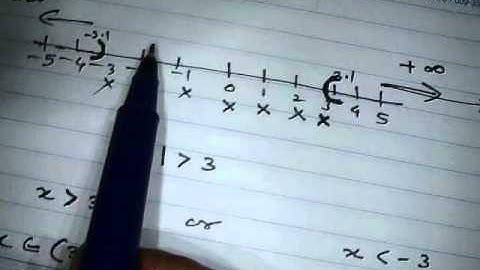 -3.1 3.1 +∞
-5 -4 -3 -1 0 1 2 3 4 5
x x x x x x
| > 3
x > 3 or x < -3